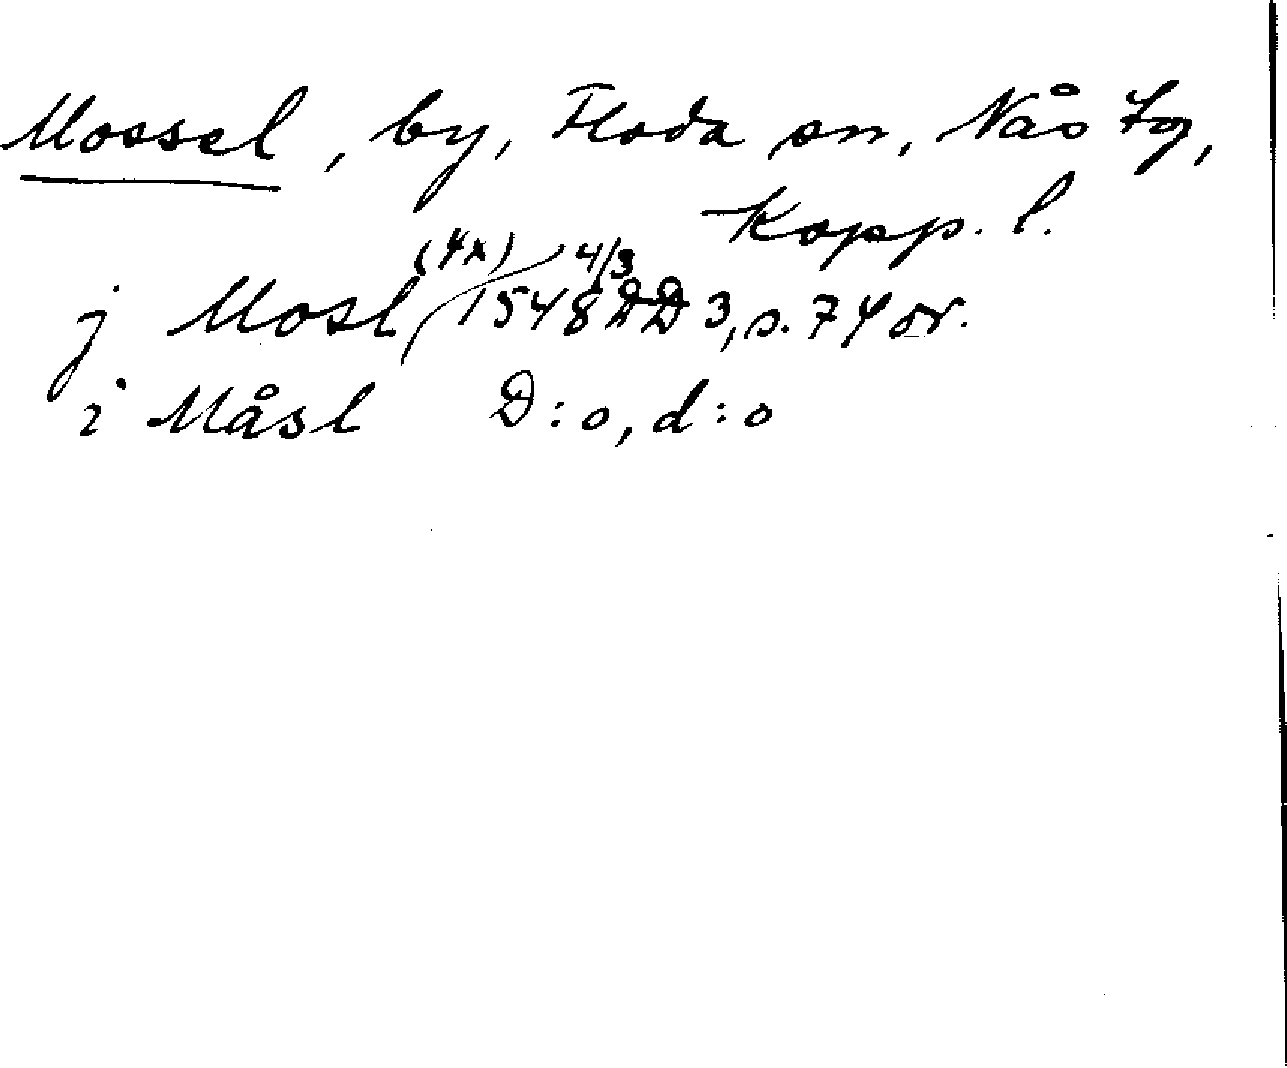 Mossel, by, Floda sn, Nås tg,
Kopp. l.
j Mosl (4x) 1548 4/3 DD 3, s. 74 or.
i Måsl D:o, d:o